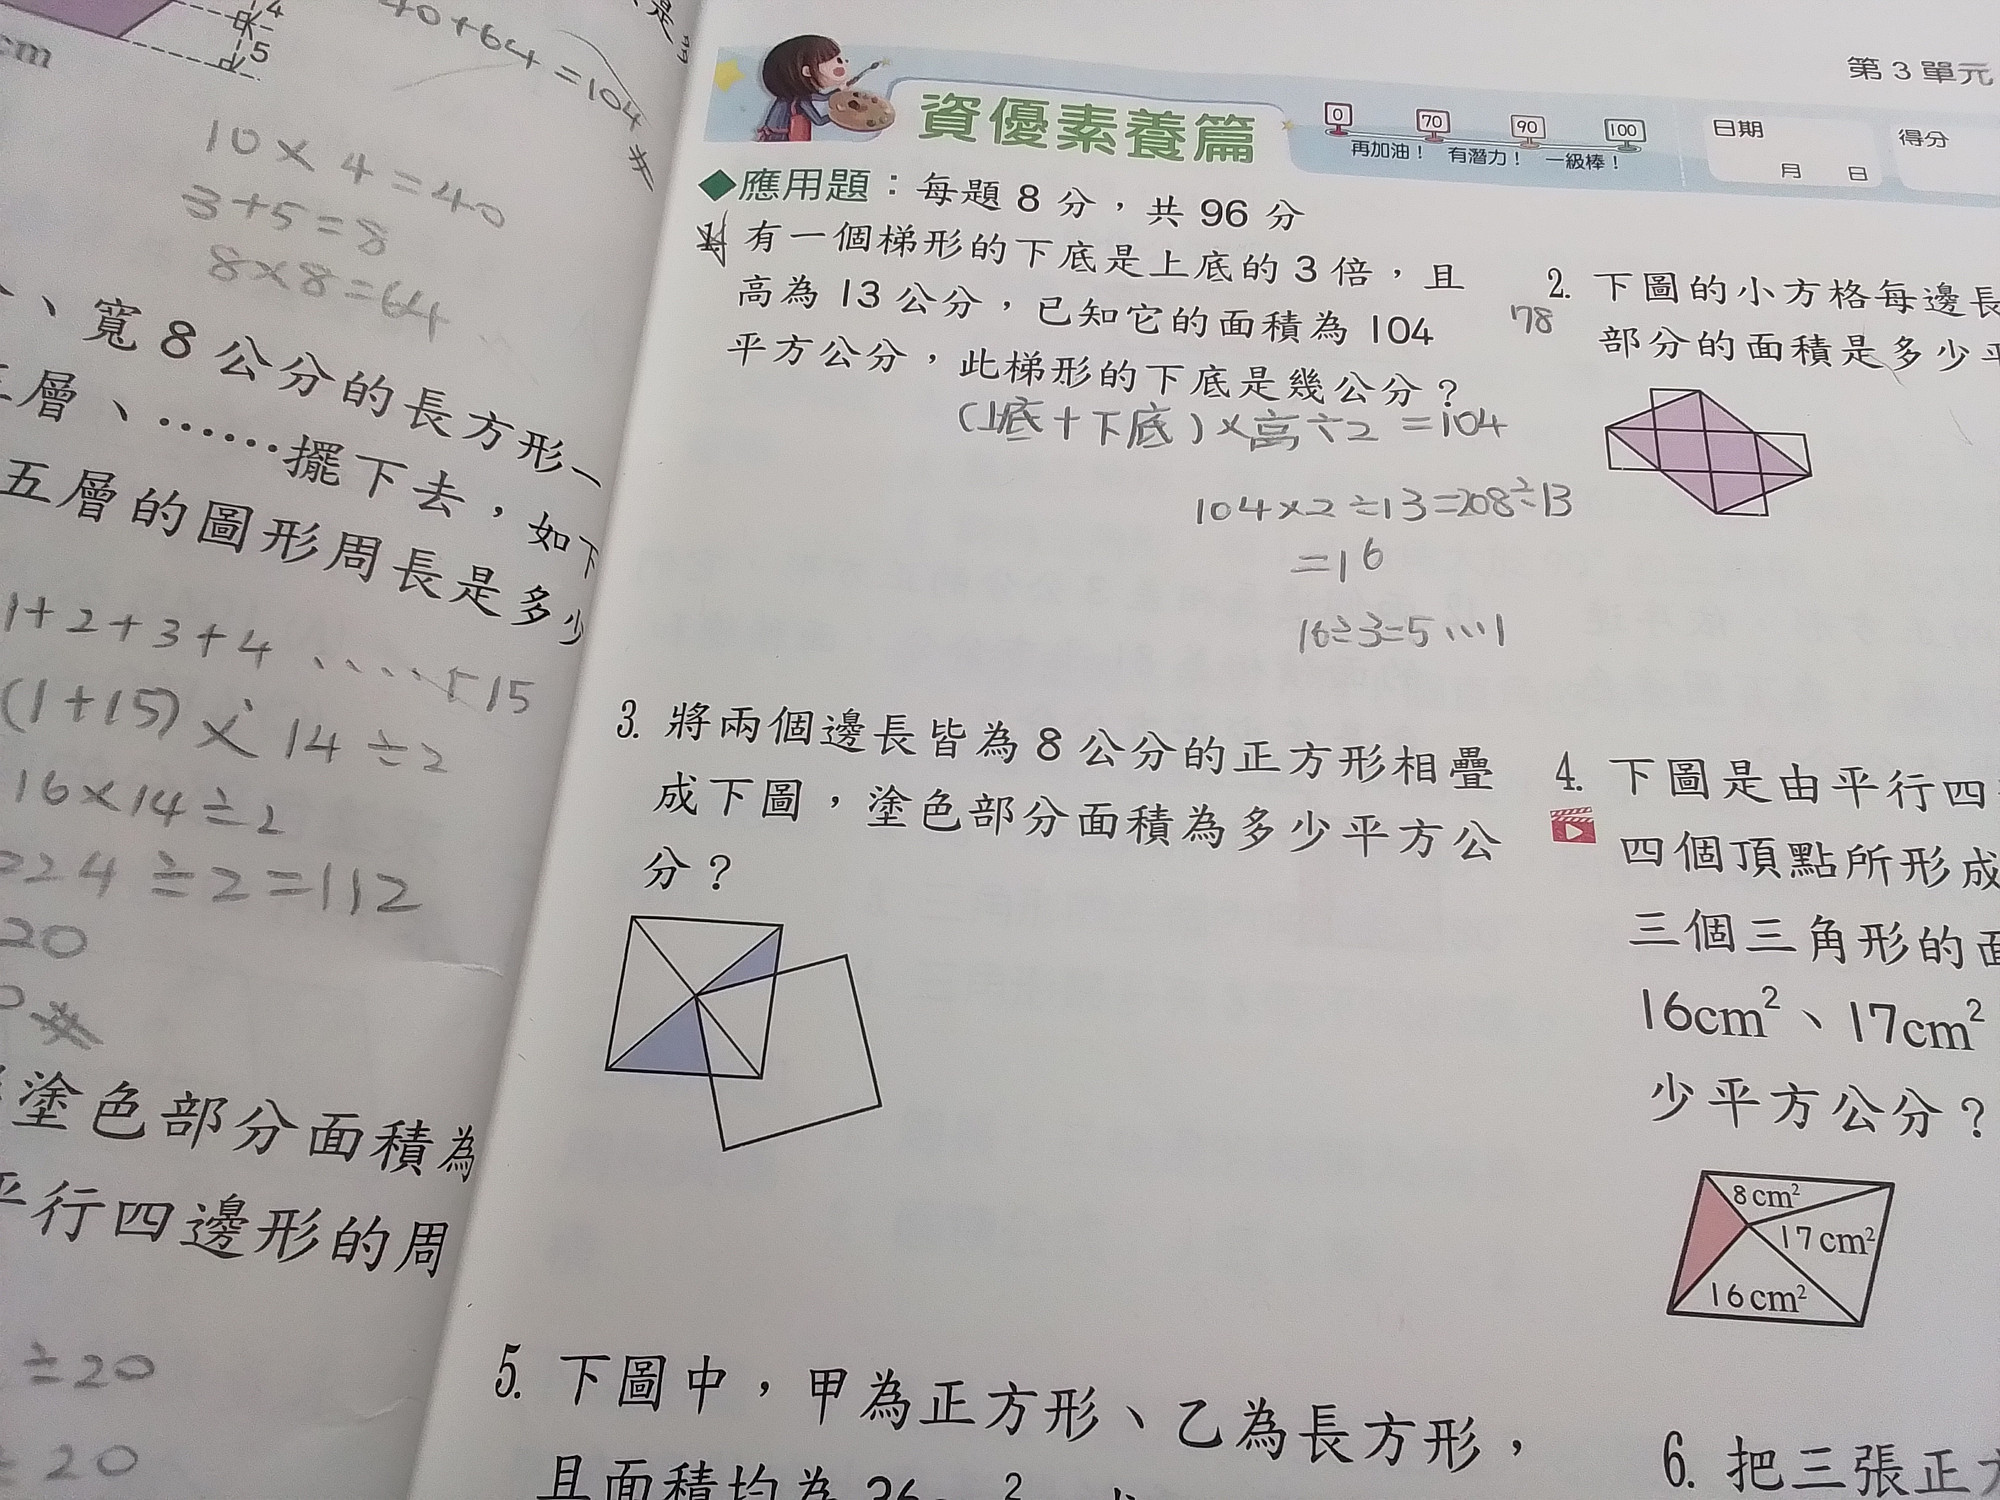 cm
4
5
40+64=104
10×4=40
3+5=8
8×8=64
、寬8公分的長方形一
層、……擺下去,如下
五層的圖形周長是多少
1+2+3+4
15
(1+15)×14÷2
16×14÷2
224÷2=112
20
塗色部分面積為
平行四邊形的周
÷20
÷20
第3單元
資優素養篇
0
70
90
100
再加油!
有潛力!
一級棒!
日期
月 日
得分
◆應用題:每題8分,共96分
1. 有一個梯形的下底是上底的3倍,且
高為13公分,已知它的面積為104
平方公分,此梯形的下底是幾公分?
(上底+下底)×高÷2=104
104×2÷13=208÷13
=16
16÷3=5…1
2. 下圖的小方格每邊長
78
部分的面積是多少平
3. 將兩個邊長皆為8公分的正方形相疊
成下圖,塗色部分面積為多少平方公
分?
4. 下圖是由平行四
四個頂點所形成
三個三角形的面
16cm²、17cm²
少平方公分?
8cm²
17cm²
16cm²
5. 下圖中,甲為正方形、乙為長方形,
且面積均為36
6. 把三張正方